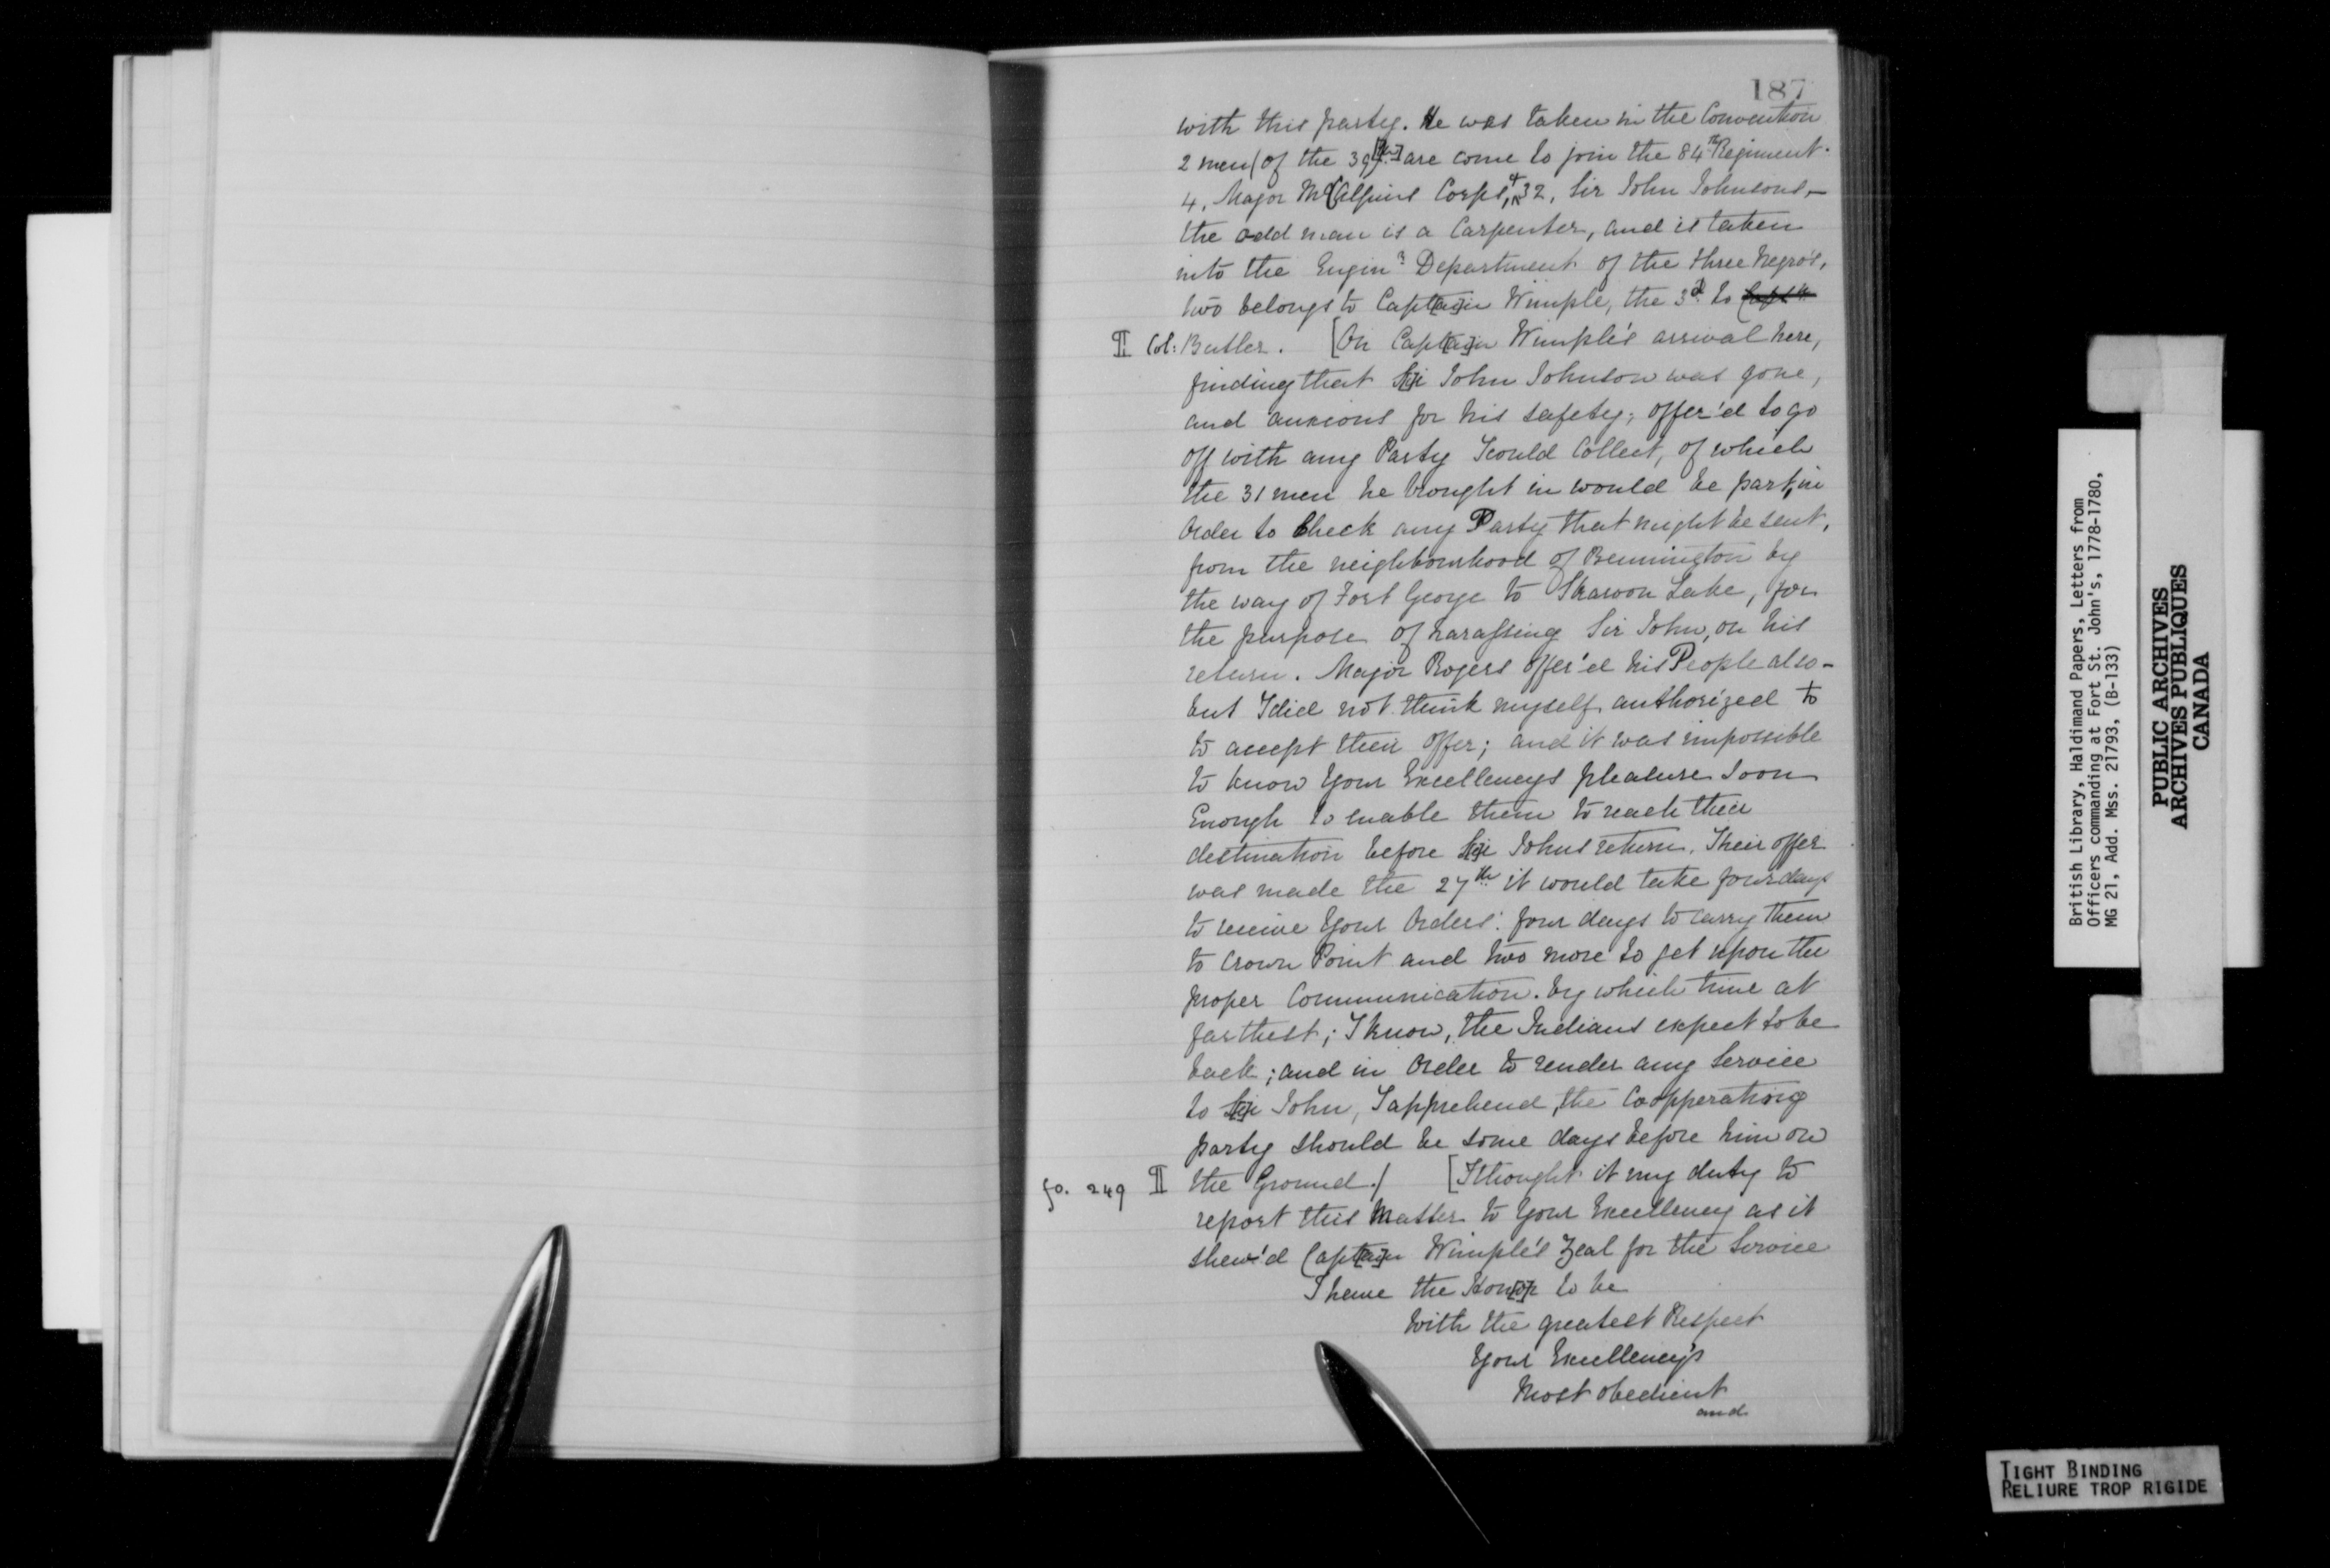 187
with this party. He was taken in the Convention
2 men (of the 39[th]) are come to join the 84th Regiment.
4, Major McAlpins Corps, & 32, Sir John Johnsons,—
the odd man is a Carpenter, and is taken
into the Enginr Department of the three Negro's,
two belongs to Capt[ai]n Wimple, the 3d. to
¶ Col: Butler. [On Capt[ai]n Wimple's arrival here,
finding that S[i]r John Johnson was gone,
and anxious for his safety; offer'd to go
off with any Party I could Collect, of which
the 31 men he brought in would be part, in
Order to Check any Party that might be sent,
from the neighbourhood of Bennington by
the way of Fort George to Skaroon Lake, for
the purpose of harassing Sir John, on his
return. Major Rogers offer'd his People also—
but I did not think myself authorized to
to accept their offer; and it was impossible
to know Your Excellencys pleasure soon
Enough to enable them to reach their
destination before S[i]r Johns return. Their offer
was made the 27th it would take four days
to receive Your Orders: four days to carry them
to Crown Point and two more to get upon the
proper Communication. by which time at
farthest; I know, the Indians expect to be
back; and in Order to render any Service
to S[i]r John, I apprehend, the Coopperating
party should be some days before him on
fo. 249 ¶ the Ground./ [I thought it my duty to
report this Matter to Your Excellency as it
shew'd Capt[ai]n Wimple's Zeal for the Service
I have the Hon[o]r to be
With the greatest Respect
Your Excellency's
Most obedient
and
British Library, Haldimand Papers, Letters from
Officers commanding at Fort St. John's, 1778-1780,
MG 21, Add. Mss. 21793, (B-133)
PUBLIC ARCHIVES
ARCHIVES PUBLIQUES
CANADA
TIGHT BINDING
RELIURE TROP RIGIDE